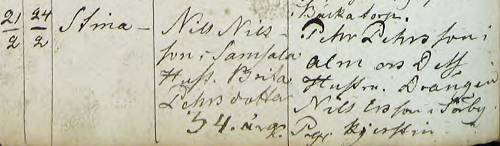 21/2 24/2 Stina – Nils Nils-
son i Samsala
Hust. Brita
Pehrsdotter
34. år
Pehr Pehrsson i
Dess
Hustru. Drängen
Nils Ersson i
Pig. Kjerstin